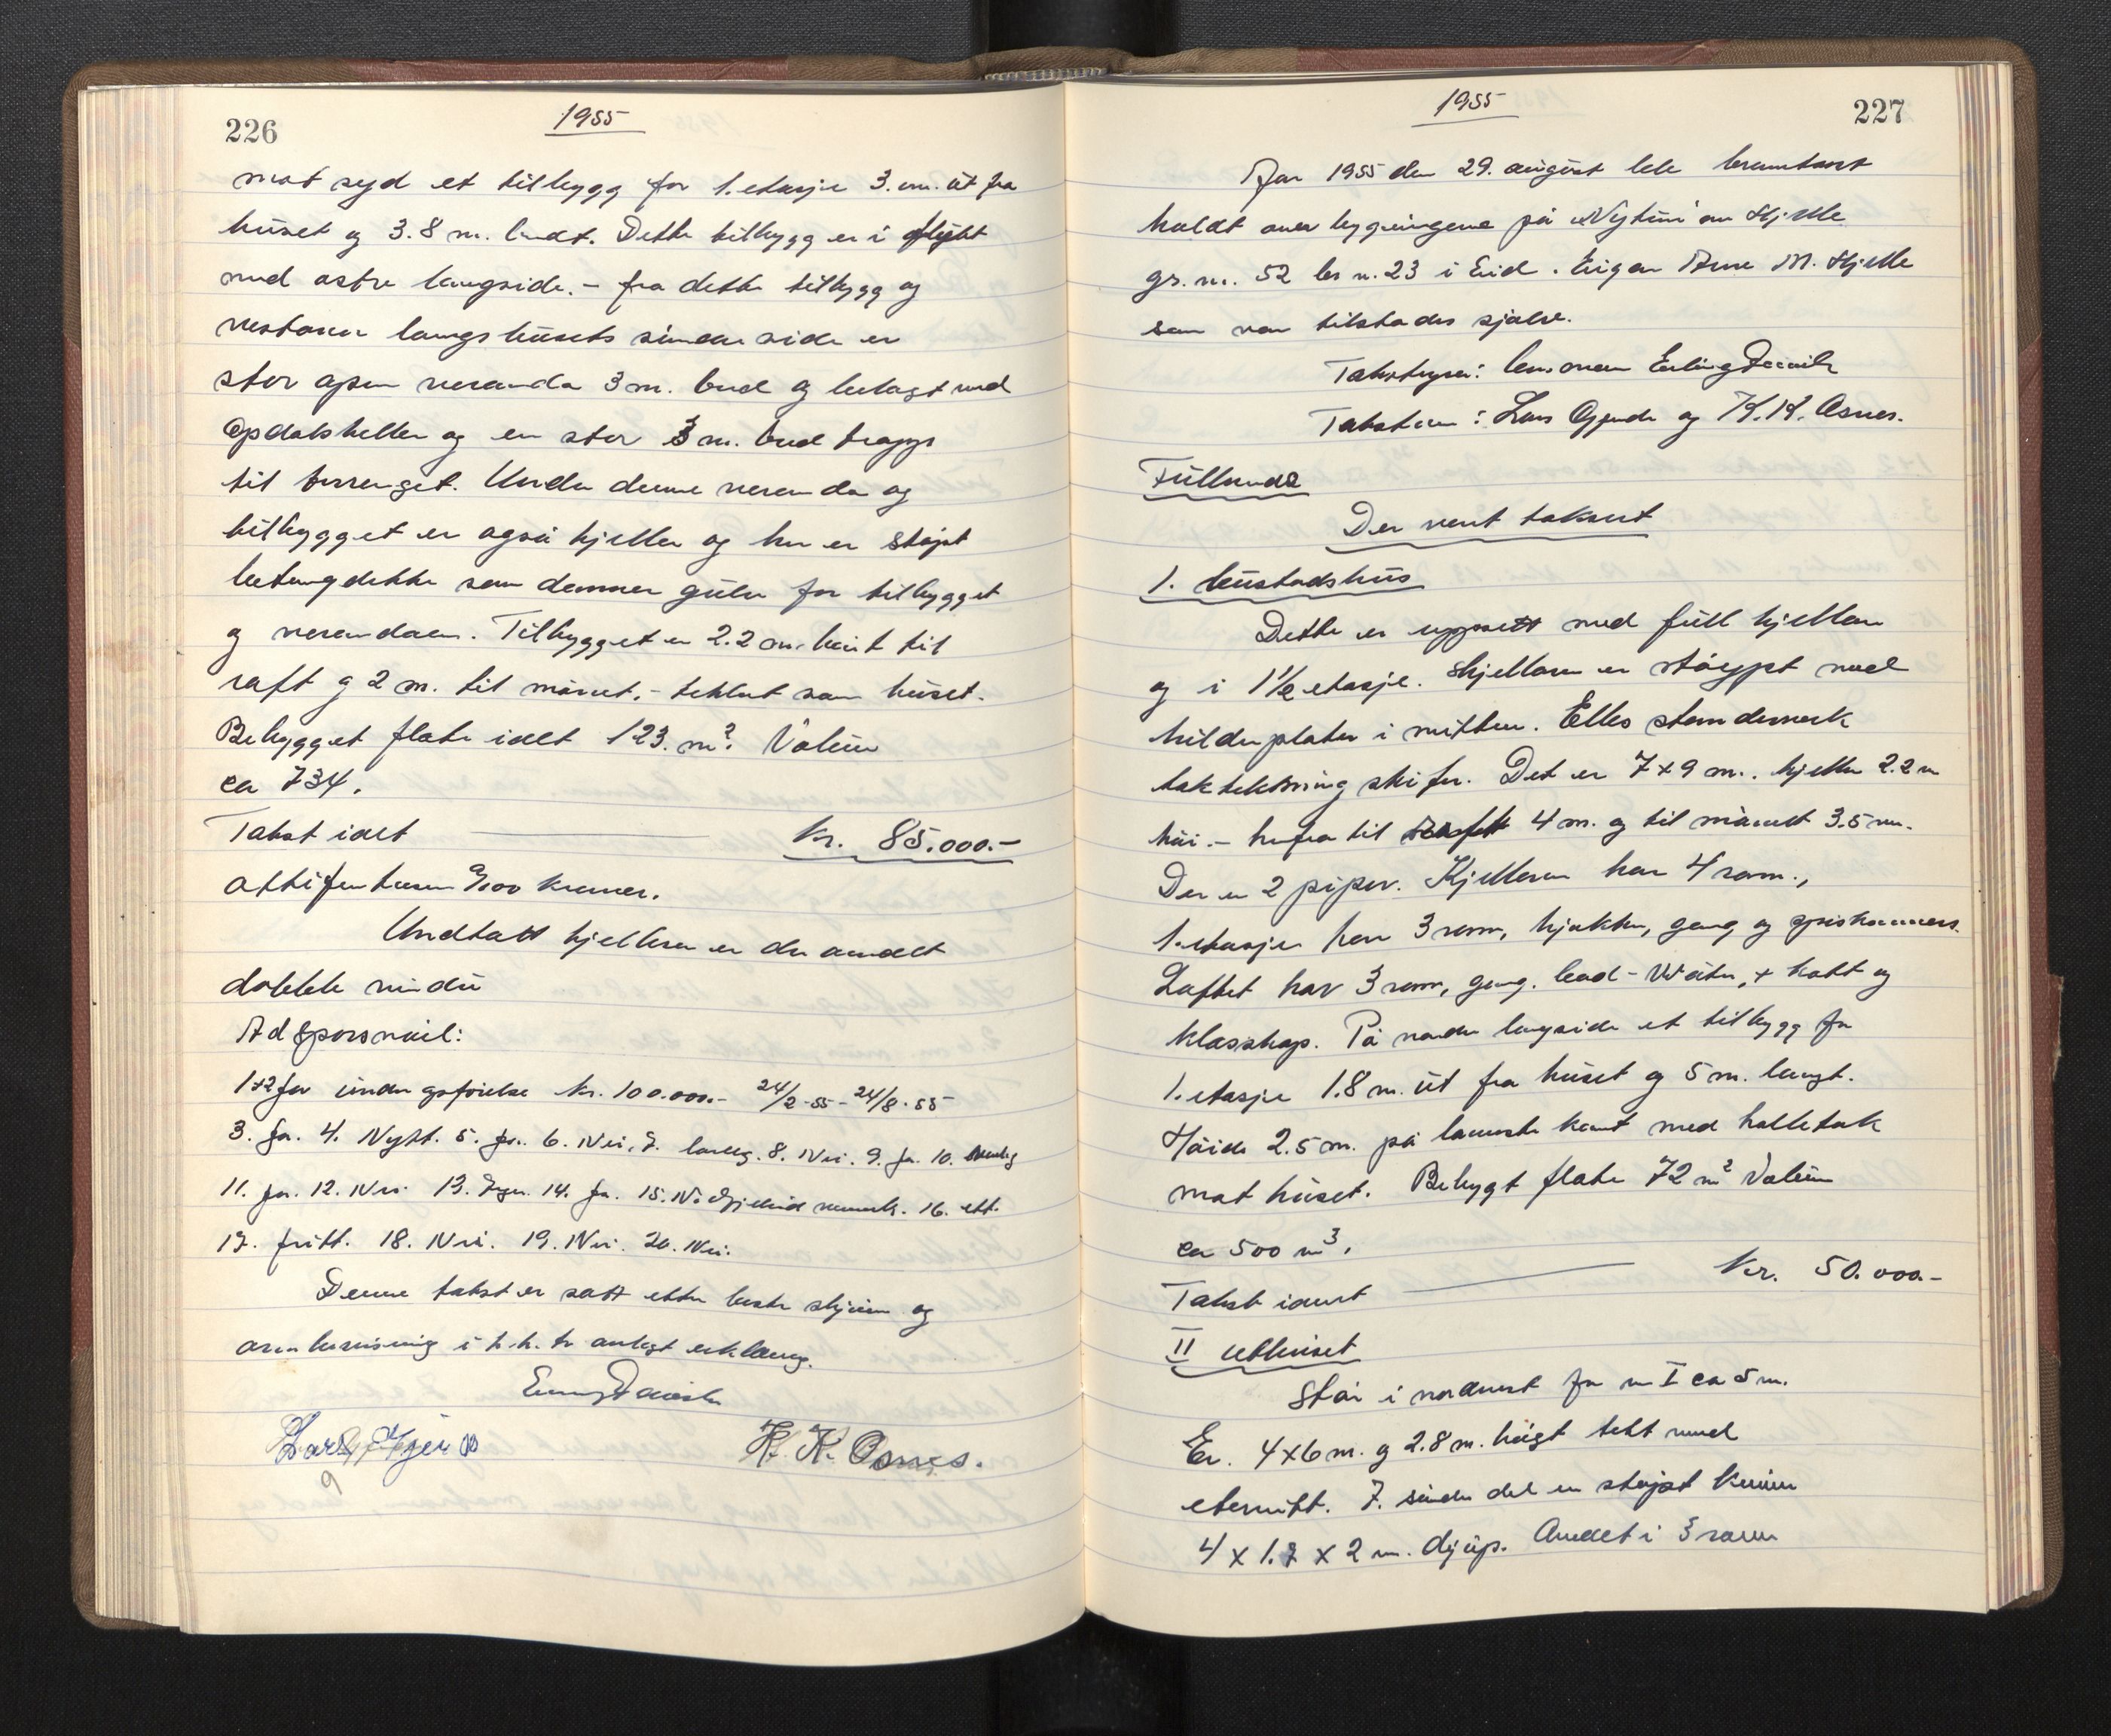 226
1955
mot syd et tilbygg for 1. etasje 3. m. ut fra
huset og 3.8 m. bredt. Dette tilbygg er i flykt
med østre langside. - fra dette tilbygg og
vestover langs husets søndre side er
stor open veranda 3 m. bred og belagt med
Opdalsheller og en stor 3 m. bred trapp
til terrenget. Under denne veranda og
tilbygget er også kjeller og her er støpt
betongdekke som danner gulv for tilbygget
og verandaen. Tilbygget er 2.2 m. høit til
raft og 2 m. til mønet. - tekket som huset.
Bebygget flate ialt 123. m². Volum
ca 734.
Takst ialt kr. 85.000.-
ottifemtusen 0/100 kroner.
Undtatt kjelleren er der overalt
doble vindu
Ad spørsmål:
1+2 før under oppførelse kr. 100.000.- 24/2-55 - 24/8-55
3. Ja. 4. Nytt. 5. Ja. 6. Nei. 7. 8. Nei. 9. Ja. 10.
11. Ja. 12. Nei. 13. 14. Ja. 15. 16. ett.
17. fritt. 18. Nei. 19. Nei. 20. Nei.
Denne takst er satt etter beste skjønn og
overbevisning i h.h. til avlagt erklæring.
K. K. Osnes.
1955
227
År 1955 den 29. august ble branntakst
holdt over bygningene på "Nytun" av Hjelle
gr. nr. 52 br. nr. 23 i Eid. Eigar Arne M. Hjelle
som var tilstades sjølv.
Takstbyrar: lensmann Erling
Takstmenn: Lars Gjengedal og K. K. Osnes.
Fullmakt
Der vart taksert
1. bustadshus
Dette er uppsett med full kjellar
og i 1½ etasje. Kjellaren er støypt med
hilderplater i mitten. Elles stenderverk
taktekking skifer. Det er 7x9 m. kjeller 2.2 m
høi. - herfra til raft 4 m. og til mønet 3.5 m.
Der er 2 piper. Kjelleren har 4 rom.,
1. etasje har 3 rom, kjøkken, gang og spiskammers.
Loftet har 3 rom, gang. bad - Water, + kott og
klesskap. På nordre langside et tilbygg for
1. etasje 1.8 m. ut fra huset og 5 m. langt.
Høide 2.5 m. på laveste kant med halltak
mot huset. Bebygt flate 72 m² Volum
ca 500 m³.
Takst i alt kr. 50.000.-
II uthuset
Står i nordvest for nr I ca 5 m.
Er. 4x6 m. og 2.8 m. høgt tekt med
eternitt. I. søndre del er støpt kum
4 x 1.7 x 2 m. djup. Andet i 3 rom